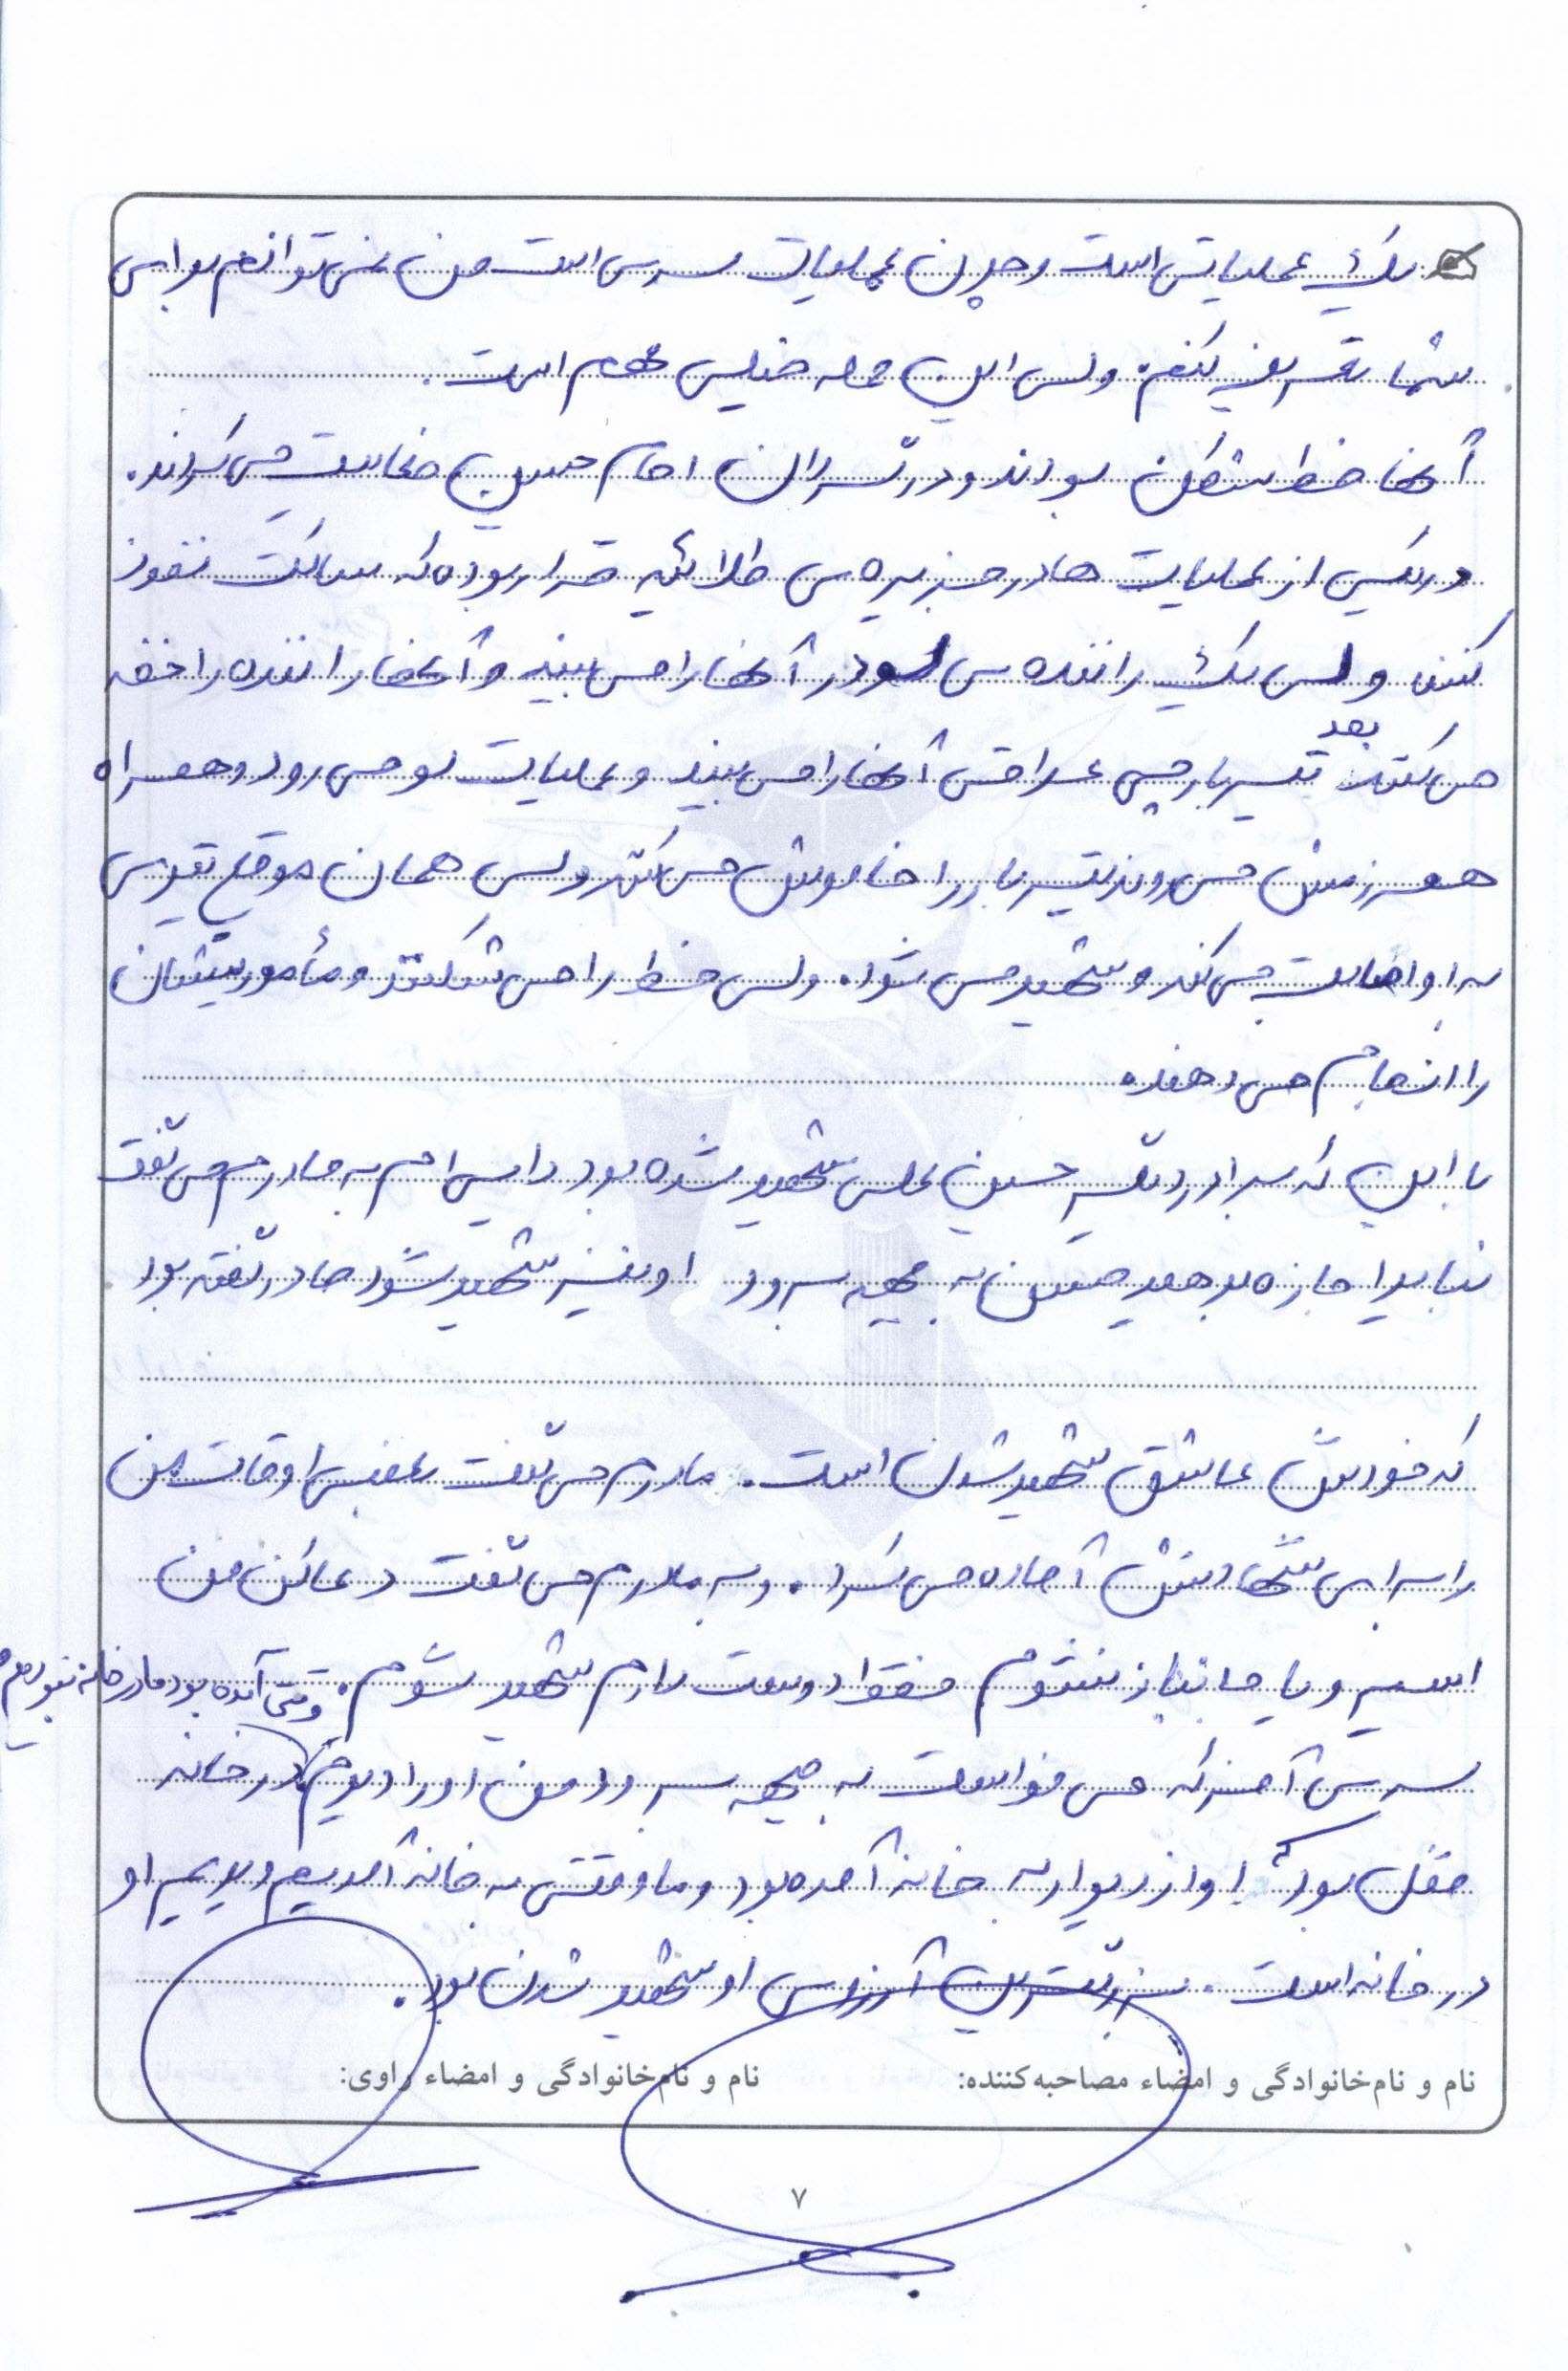 یک عملیاتی است و چون عملیات سری است من نمی‌توانم برای
شما تعریف کنم. ولی این حمله خیلی مهم است.
آنها خط شکن بودند و در گردان امام حسین فعالیت می‌کردند.
در یکی از عملیات ها در جزیره‌ی طلائیه قرار بوده که ساکت نفوذ
کنند ولی یک راننده‌ی لودر آنها را می‌بیند و آنها راننده را خفه
می‌کنند بعد تیربارچی عراقی آنها را می‌بیند و عملیات لو می‌رود و همراه
همرزمش می‌روند تیربار را خاموش می‌کنند ولی همان موقع تیری
به او اصابت می‌کند و شهید می‌شود. ولی خط را می‌شکنند و مأموریتشان
را انجام می‌دهند.
با این که برادر دیگر حسین علی شهید شده بود دایی ام به مادرم می‌گفت
نباید اجازه بدهید حسین به جبهه برود او نیز شهید شود مادر گفته بود
که خودش عاشق شهید شدن است. مادرم می‌گفت بعضی اوقات من
را برای شهادتش آماده می‌کرد. و به مادرم می‌گفت دعا کن من
اسیر و یا جانباز نشوم فقط دوست دارم شهید شوم. وقتی آمده بود ما در خانه نبودیم
سری آخر که می‌خواست به جبهه برود من او را دیدم در خانه
قفل بود او از دیوار به خانه آمده بود و ما وقتی به خانه آمدیم دیدیم او
در خانه است. بزرگترین آرزوی او شهید شدن بود.
نام و نام‌خانوادگی و امضاء مصاحبه‌کننده: نام و نام‌خانوادگی و امضاء راوی:
۷